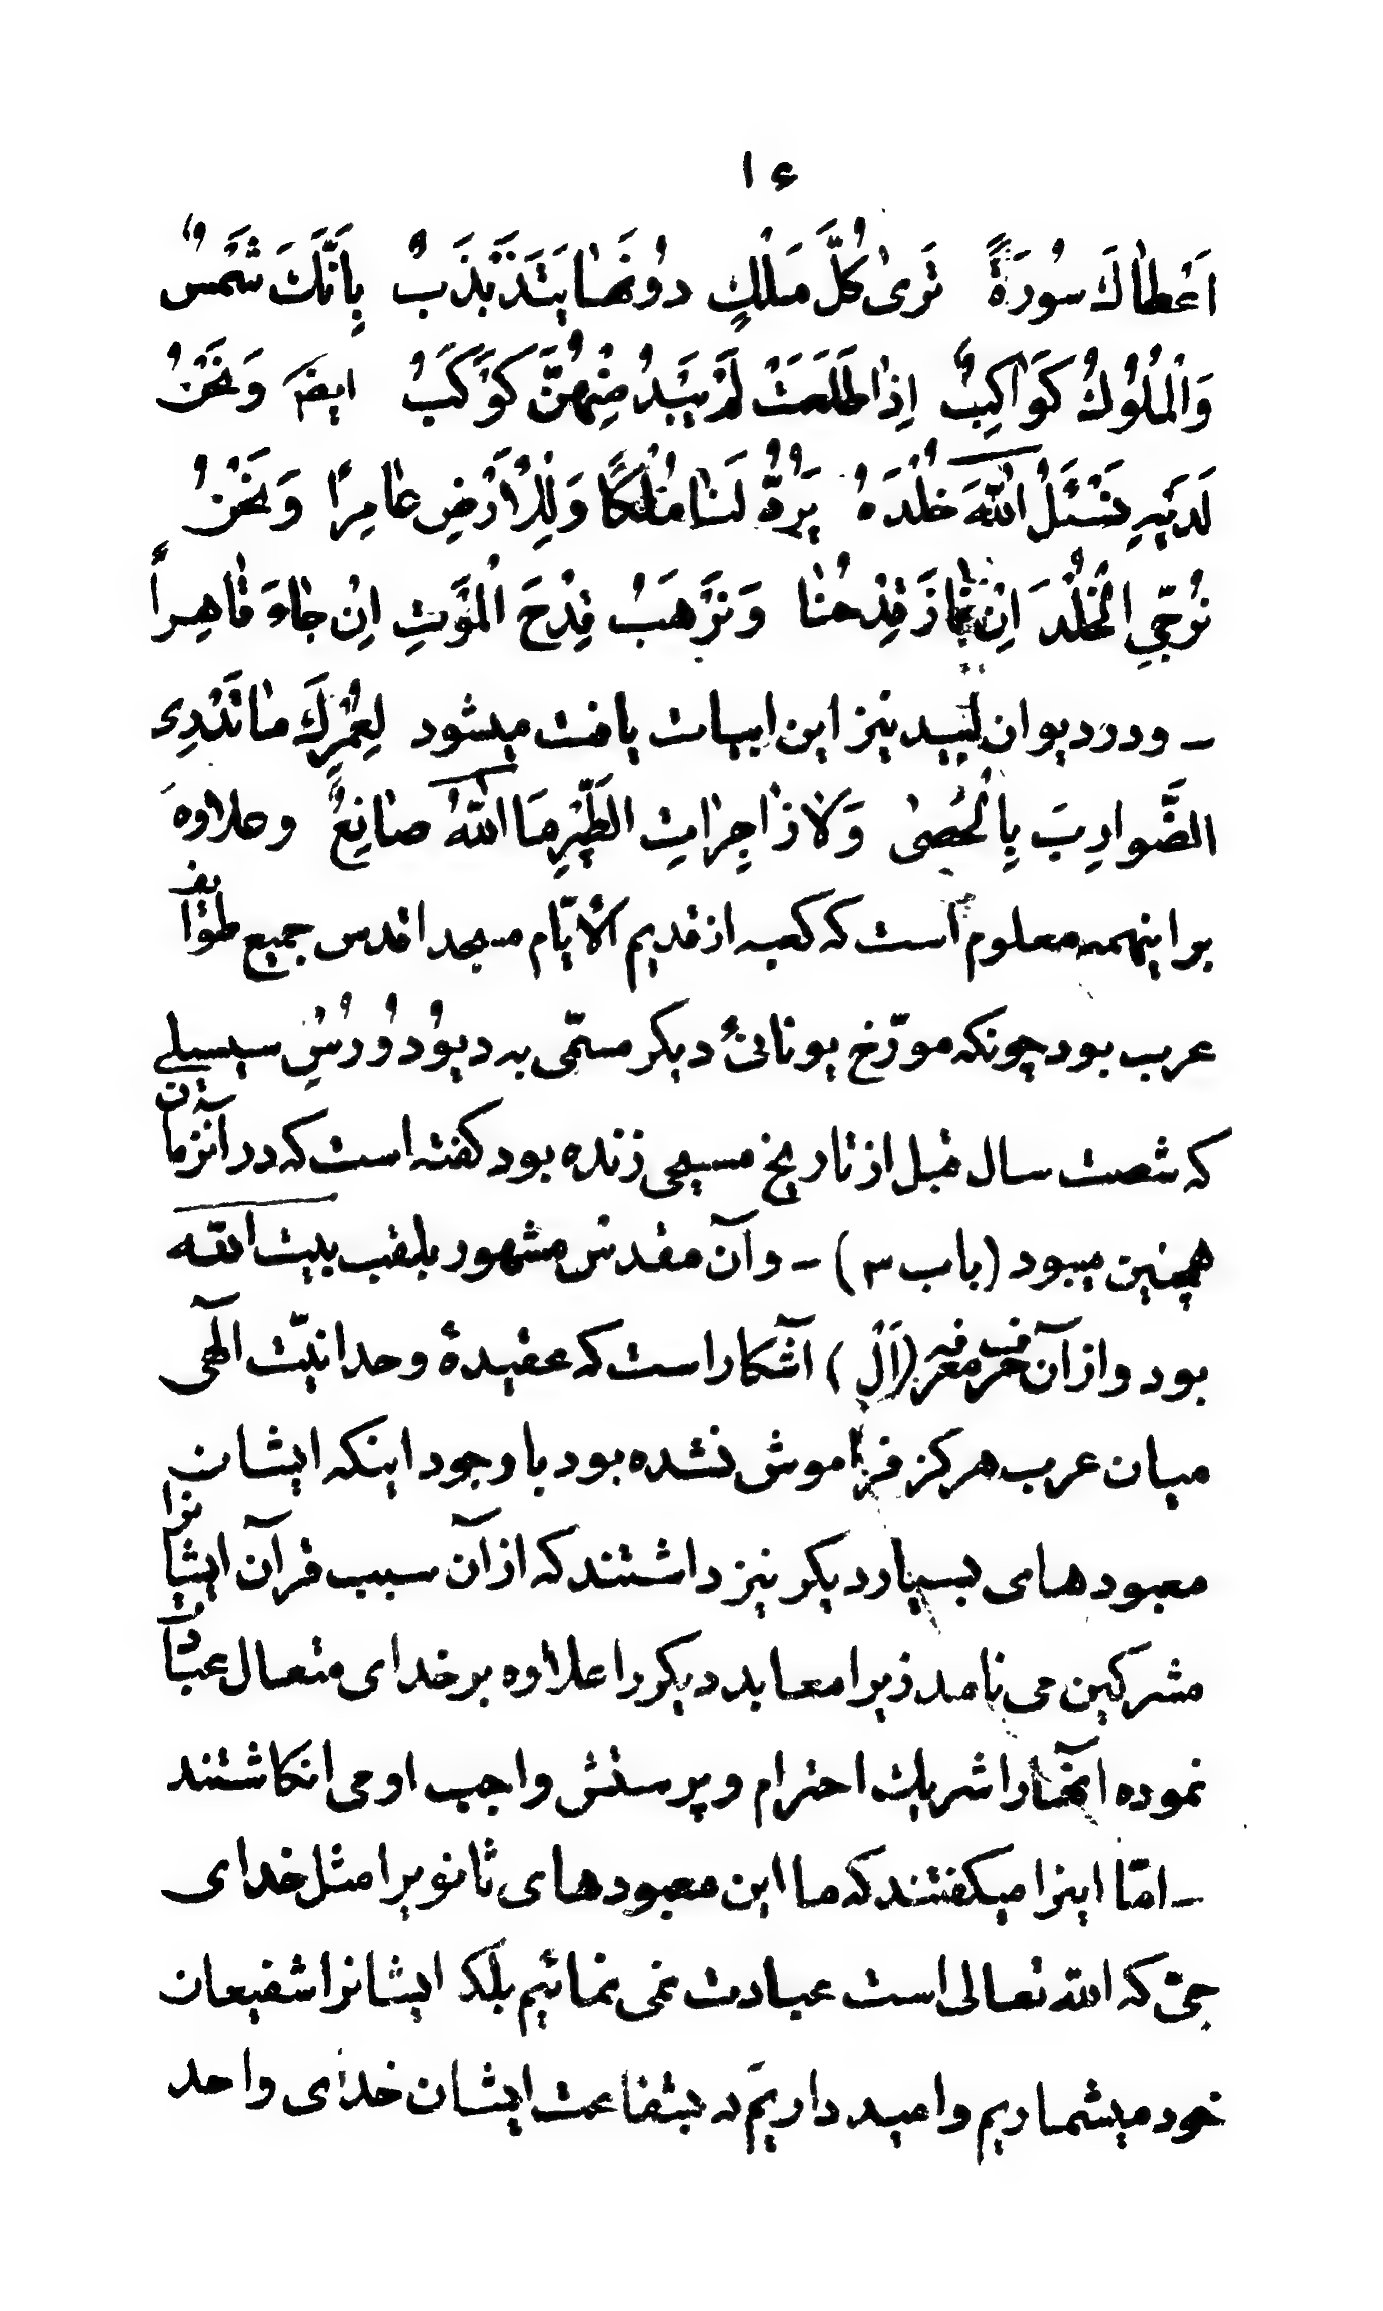 ١٤
اَعْطاكَ سُورَةً تَرىٰ كُلَّ مَلْكٍ دُونَهٰا يَتَذَبْذَبُ بِاَنَّكَ شَمْسٌ
وَالْمُلُوكُ كَوَاكِبٌ اِذٰا طَلَعَتْ لَمْ يَبْدُ مِنْهُنَّ كَوْكَبُ ایضَ وَنَحْنُ
لَدَيْهِ نَسْئَلُ اللّٰهَ خُلْدَهُ يَرُدُّ لَنٰا مُلْكًا وَلِلْاَرْضِ عٰامِرًا وَنَحْنُ
نُرَجّیِ الْخُلْدَ اِنْ فٰازَ قِدْحُنٰا وَنَرْهَبُ قِدْحَ الْمَوْتِ اِنْ جٰاءَ قٰاهِراً
ـ ودر دیوان لبید نیز این ابیات یافت میشود لِعَمْرُكَ مٰا تَدْرِی
الضَّوارِبَ بِالْحَصىٰ وَلاٰ زٰاجِرٰاتِ الطَّيْرِ مَا اللّٰهُ صٰانِعٌ وعلاوهَ
بر اینهمه معلوم است که کعبه از قدیم الأیّام مسجد اقدس جمیع طوائف
عرب بود چونکه مورّخ یونانئ دیکر مسمّی به دیُودُورُسِ سیسیلے
که شصت سال قبل از تاریخ مسیحی زنده بود کفته است که در آنزمان
همچنین میبود (باب ٣) ـ وآن مقدس مشهور بلقب بیت اللّٰه
بود واز آن حرف معرفه (اَلْ) آشکار است که عقیدهٔ وحدانیّت آلهی
میان عرب هرکز فراموش نشده بود با وجود اینکه ایشان
معبودهای بسیار دیکر نیز داشتند که از آن سبب قرآن ایشانرا
مشرکین می نامد زیرا معابد دیکر را علاوه بر خدای متعال عبادت
نموده آنهٰا را شریك احترام وپرستش واجب او می انکاشتند
ـ امّا اینرا میکفتند که ما این معبودهای ثانویرا مثل خدای
حیّ که اللّٰه تعالی است عبادت نمی نمائیم بلکه ایشانرا شفیعان
خود میشماریم وامید داریم که بشفاعت ایشان خدای واحد